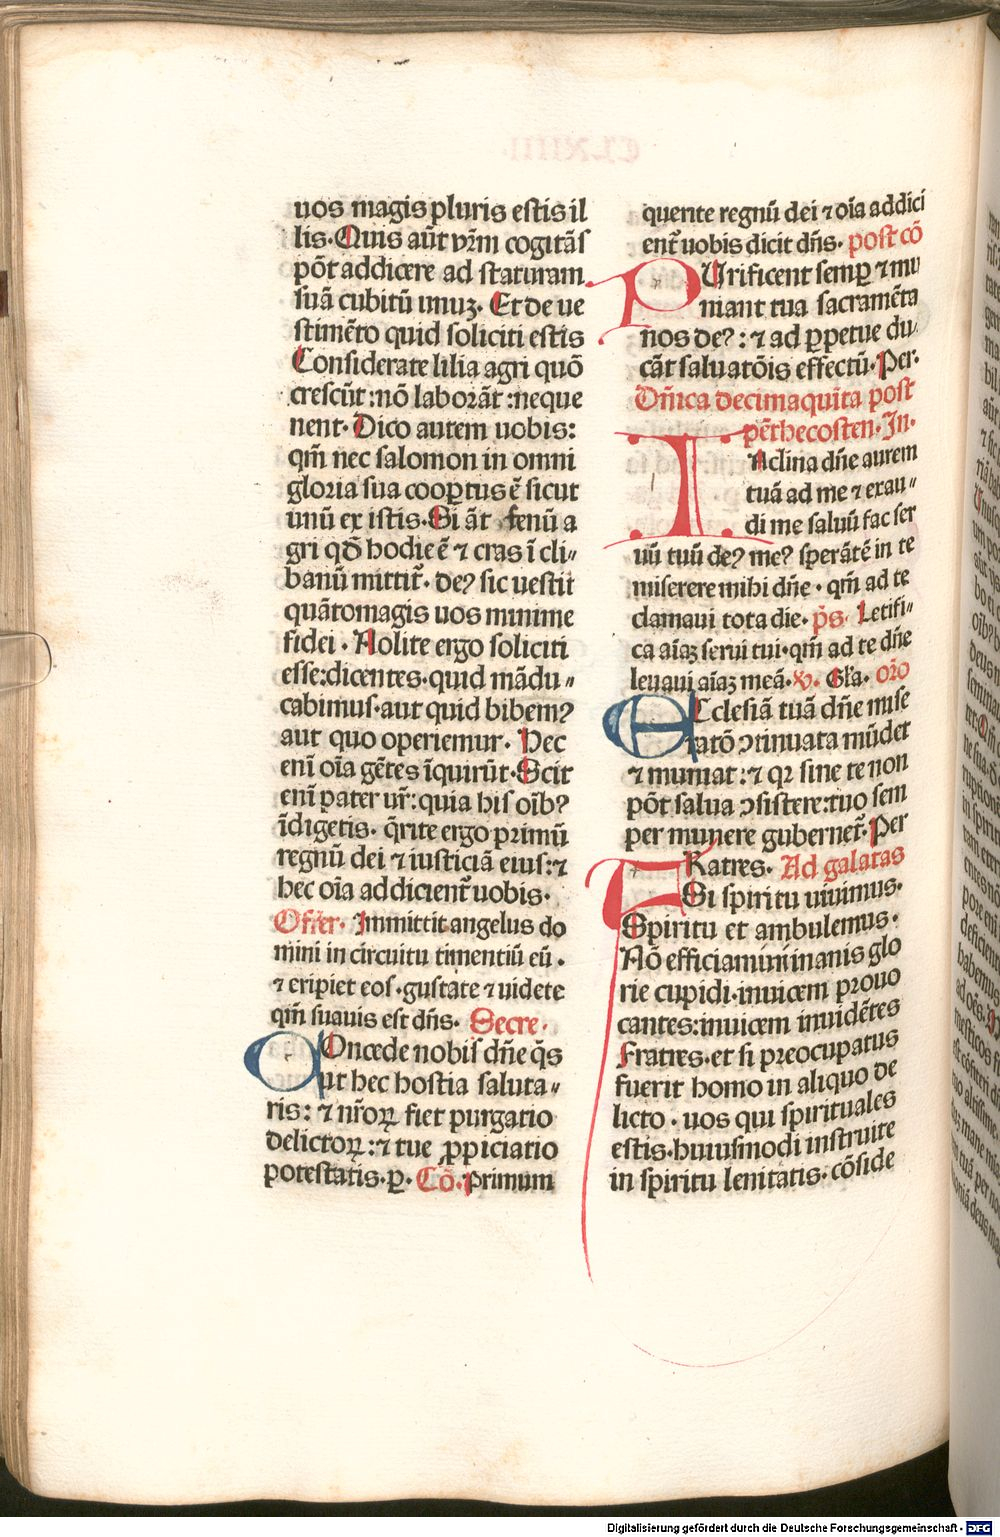 uos magis pluris estis il
lis. Quis aũt vr̃m cogitãs
põt addicere ad staturam
suã cubitũ unuꝫ. Et de ue
stimẽto quid soliciti estis
Considerate lilia agri quõ
crescũt: nõ laborãt: neque
nent. Dico autem uobis:
qm̃ nec salomon in omni
gloria sua coopertus ẽ sicut
unũ ex istis. Si ãt fenũ a
gri qđ hodie ẽ ⁊ cras ĩ cli⸗
banũ mittit̃. deꝰ sic uestit
quãto magis uos minime
fidei. Nolite ergo soliciti
esse: dicentes. quid mãdu⸗
cabimus. aut quid bibemꝰ
aut quo operiemur. Hec
eñi oĩa gẽtes ĩquirũt. Scit
eñi pater ur̃: quia his oĩbꝰ
ĩdigetis. q̃rite ergo primũ
regnũ dei ⁊ iusticiã eius: ⁊
hec oĩa addicient̃ uobis.
Offer. Immittit angelus do
mini in circuitu timentiũ eũ.
⁊ eripiet eos. gustate ⁊ uidete
qm̃ suauis est dñs. Secre.
COncede nobis dñe q̃s
ut hec hostia saluta⸗
ris: ⁊ nr̃oꝝ fiet purgatio
delictoꝝ: ⁊ tue ꝓpiciatio
potestatis. ꝑ. Cõ. Primum
querite regnũ dei ⁊ oĩa addici
ent̃ uobis dicit dñs. post cõ
PUrificent semꝑ ⁊ mu
niant tua sacramẽta
nos deꝰ: ⁊ ad ꝑpetue du
cãt saluatõis effectũ. Per.
Dñica decimaquĩta post
pẽthecosten. In.
INclina dñe aurem
tuã ad me ⁊ exau⸗
di me saluũ fac ser
uũ tuũ deꝰ meꝰ sperãtẽ in te
miserere mihi dñe. qm̃ ad te
clamaui tota die. p̃s. Letifi⸗
ca aĩaꝫ serui tui. qm̃ ad te dñe
leuaui aĩaꝫ meã. ℣. Gl̃a. or̃o
ECclesiã tuã dñe mise
ratõ ↄtinuata mũdet
⁊ muniat: ⁊ qꝛ sine te non
põt salua ↄsistere: tuo sem
per munere gubernet̃. Per
FRatres. Ad galatas
Si spiritu uiuimus.
Spiritu et ambulemus.
Nõ efficiamini inanis glo
rie cupidi. inuicem prouo
cantes: inuicem inuidẽtes
Fratres. et si preocupatus
fuerit homo in aliquo de
licto. uos qui spirituales
estis. huiusmodi instruite
in spiritu lenitatis. cõside
Digitalisierung gefördert durch die Deutsche Forschungsgemeinschaft - DFG